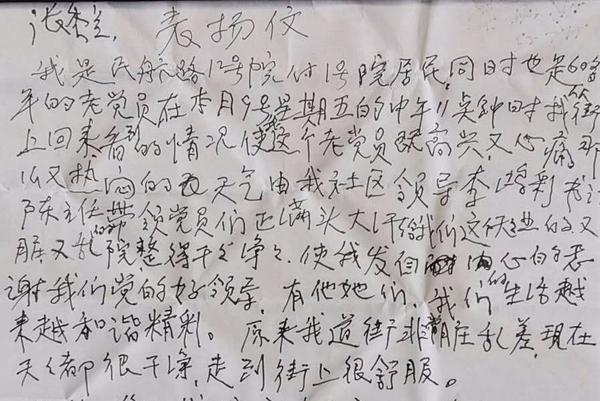 表扬仪
我是民航路12号院付1号院居民,同时也是60多
年的老党员在本月9号星期五的中午11点钟时我从街
上回来看到的情况使这个老党员既高兴,又心痛那
么又热闷的天气由我社区领导李鸿彩书记
陈主任带领党员们正满头大汗给我们这又
脏又乱的院整得干干净净。使我发自内心的感
谢我们党的好领导,有他她们,我们的生活越
来越和谐精彩。原来我道街非常脏乱差,现在
天天都很干净,走到街上很舒服。